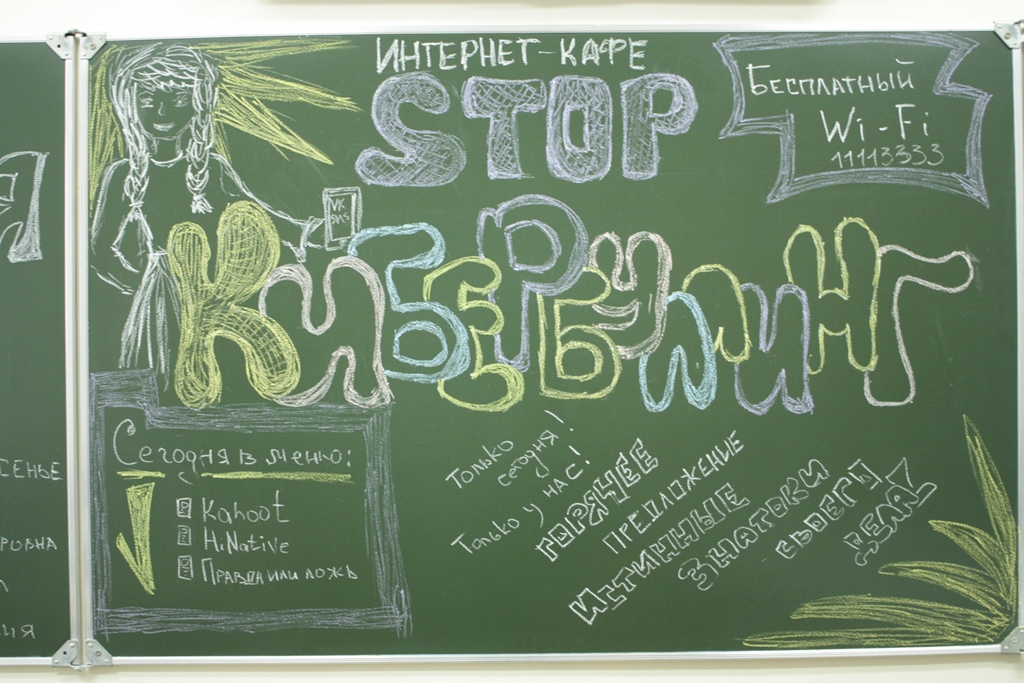 ИНТЕРНЕТ-КАФЕ
STOP
КИБЕРБУЛЛИНГ
Бесплатный
Wi-Fi
11113333
VK
SMS
Сегодня в меню:
Kahoot
HiNative
Правда или ложь
Только
сегодня!
Только у нас!
ГОРЯЧЕЕ
ПРЕДЛОЖЕНИЕ
ИСТИННЫЕ
ЗНАТОКИ
СВОЕГО
ДЕЛА!
Я
СЕНЬЕ
РОВНА
ИЯ